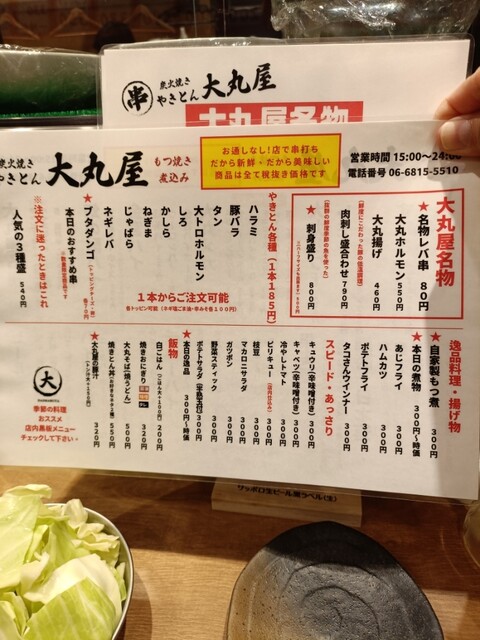 串
炭火焼き
やきとん 大丸屋
大丸屋名物
炭火焼き
やきとん 大丸屋
もつ焼き
煮込み
お通しなし!店で串打ち
だから新鮮・だから美味しい
商品は全て税抜き価格です
営業時間 15:00〜24:00
電話番号 06-6815-5510
大丸屋名物
★名物レバ串 80円
大丸ホルモン 550円
大丸揚げ 460円
肉刺し盛合わせ 790円
★刺身盛り 800円
やきとん各種(1本185円)
ハラミ
豚バラ
タン
大トロホルモン
しろ
かしら
ねぎま
じゃばら
ネギレバ
★ブタダンゴ
1本からご注文可能
本日のおすすめ串
※注文に迷ったときはこれ
人気の3種盛 540円
逸品料理・揚げ物
★自家製もつ煮 300円
★本日の煮物 300円〜時価
あじフライ 300円
ハムカツ 300円
ポテトフライ 300円
タコさんウインナー 300円
スピード・あっさり
キュウリ(辛味噌付き) 300円
キャベツ(辛味噌付き) 300円
冷やしトマト 300円
ピリキュー 300円
枝豆 300円
マカロニサラダ 300円
ガツポン 300円
野菜スティック 300円
ポテトサラダ 300円
★本日の逸品 300円〜時価
飯物
白ごはん 200円
焼きおにぎり 320円
大丸そば(焼うどん) 550円
焼きとん丼 500円
大丸屋の豚汁 320円
大
季節の料理
おススメ
店内黒板メニュー
チェックして下さい。